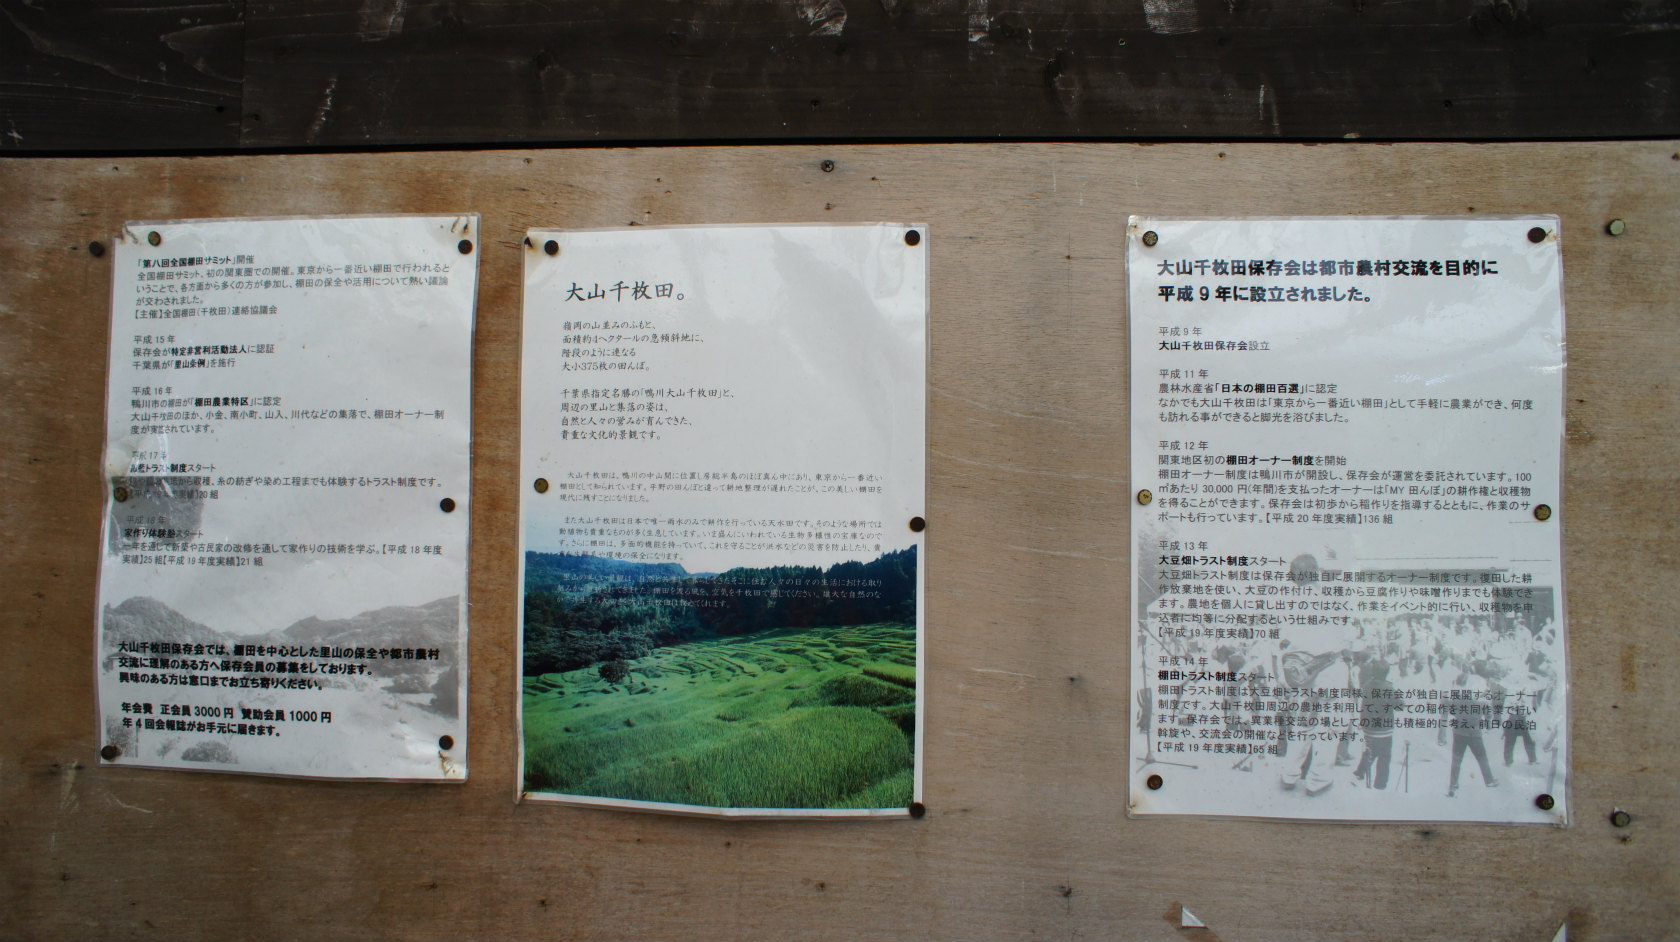 「第八回全国棚田サミット」開催
全国棚田サミット、初の関東圏での開催。東京から一番近い棚田で行われると
いうことで、各方面から多くの方が参加し、棚田の保全や活用について熱い議論
が交わされました。
【主催】全国棚田（千枚田）連絡協議会
平成 15 年
保存会が特定非営利活動法人に認証
千葉県が「里山条例」を施行
平成 16 年
鴨川市の棚田が「棚田農業特区」に認定
大山千枚田のほか、小金、南小町、山入、川代などの集落で、棚田オーナー制
度が実施されています。
平成 17 年
トラスト制度スタート
から収穫、糸の紡ぎや染め工程までも体験するトラスト制度です。
20 組
平成 18 年
家作り体験塾スタート
一年を通じて新築や古民家の改修を通して家作りの技術を学ぶ。【平成 18 年度
実績】25 組【平成 19 年度実績】21 組
大山千枚田保存会では、棚田を中心とした里山の保全や都市農村
交流に理解のある方へ保存会員の募集をしております。
興味のある方は窓口までお立ち寄りください。
年会費 正会員 3000 円 賛助会員 1000 円
年 4 回会報誌がお手元に届きます。
大山千枚田。
嶺岡の山並みのふもと、
面積約4ヘクタールの急傾斜地に、
階段のように連なる
大小375枚の田んぼ。
千葉県指定名勝の「鴨川大山千枚田」と、
周辺の里山と集落の姿は、
自然と人々の営みが育んできた、
貴重な文化的景観です。
大山千枚田は、鴨川の中山間に位置し房総半島のほぼ真ん中にあり、東京から一番近い
棚田として知られています。平野の田んぼと違って耕地整理が遅れたことが、この美しい棚田を
現代に残すことになりました。
また大山千枚田は日本で唯一雨水のみで耕作を行っている天水田です。そのような場所では
動植物も貴重なものが多く生息しています。いま盛んにいわれている生物多様性の宝庫なので
す。さらに棚田は、多面的機能を持っていて、これを守ることが洪水などの災害を防止したり、貴
重な生態系や環境の保全になります。
里山の美しい景観は、自然と共生して暮らしてきたそこに住む人々の日々の生活における取り
組みから生まれてきました。棚田を渡る風を、空気を千枚田で感じてください。雄大な自然のな
大山千枚田保存会は都市農村交流を目的に
平成 9 年に設立されました。
平成 9 年
大山千枚田保存会設立
平成 11 年
農林水産省「日本の棚田百選」に認定
なかでも大山千枚田は「東京から一番近い棚田」として手軽に農業ができ、何度
も訪れる事ができると脚光を浴びました。
平成 12 年
関東地区初の棚田オーナー制度を開始
棚田オーナー制度は鴨川市が開設し、保存会が運営を委託されています。100
㎡あたり 30,000 円(年間)を支払ったオーナーは「MY 田んぼ」の耕作権と収穫物
を得ることができます。保存会は初歩から稲作りを指導するとともに、作業のサ
ポートも行っています。【平成 20 年度実績】136 組
平成 13 年
大豆畑トラスト制度スタート
大豆畑トラスト制度は保存会が独自に展開するオーナー制度です。復田した耕
作放棄地を使い、大豆の作付け、収穫から豆腐作りや味噌作りまでも体験でき
ます。農地を個人に貸し出すのではなく、作業をイベント的に行い、収穫物を申
込者に均等に分配するという仕組みです。
【平成 19 年度実績】70 組
平成 14 年
棚田トラスト制度スタート
棚田トラスト制度は大豆畑トラスト制度同様、保存会が独自に展開するオーナー
制度です。大山千枚田周辺の農地を利用して、すべての稲作を共同作業で行い
ます。保存会では、異業種交流の場としての演出も積極的に考え、前日の民泊
斡旋や、交流会の開催などを行っています。
【平成 19 年度実績】65 組